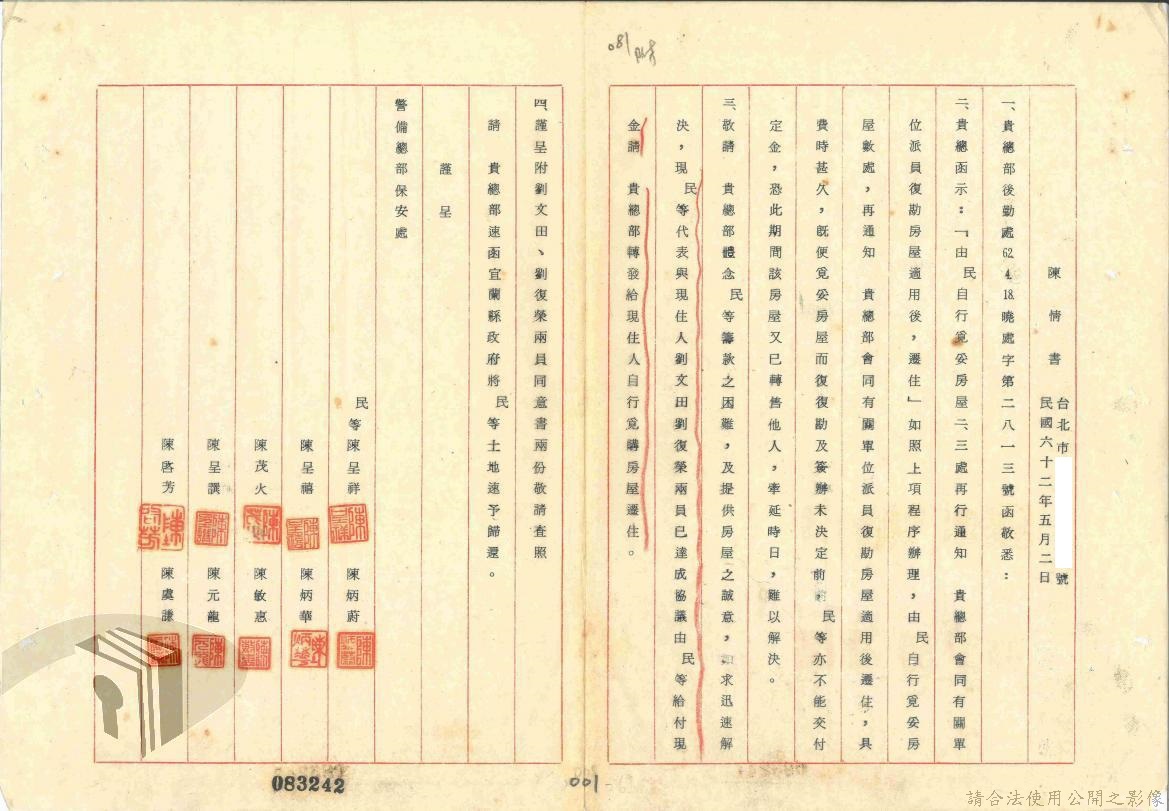 081
陳情書
台北市
號
民國六十二年五月二日
一、貴總部後勤處62 4.18.曉處字第二八一三號函敬悉：
二、貴總函示：「由民自行覓妥房屋二、三處再行通知　貴總部會同有關單
位派員復勘房屋適用後，遷住」如照上項程序辦理，由民自行覓妥房
屋數處，再通知　貴總部會同有關單位派員復勘房屋適用後遷住，具
費時甚久，既便覓妥房屋而復復勘及簽辦未決定前前民等亦不能交付
定金，恐此期間該房屋又已轉售他人，牽延時日，難以解決。
三、敬請　貴總部體念民等籌款之困難，及提供房屋之誠意，如求迅速解
決，現民等代表與現住人劉文田劉復榮兩員已達成協議由民等給付現
金請　貴總部轉發給現住人自行覓購房屋遷住。
四、謹呈附劉文田、劉復榮兩員同意書兩份敬請查照
請　貴總部速函宜蘭縣政府將民等土地速予歸還。
謹呈
警備總部保安處
民等陳呈祥　陳炳蔚
陳呈禧　陳炳華
陳茂火　陳敏惠
陳呈譔　陳元龍
陳啓芳　陳虞謙
083242
001
請合法使用公開之影像